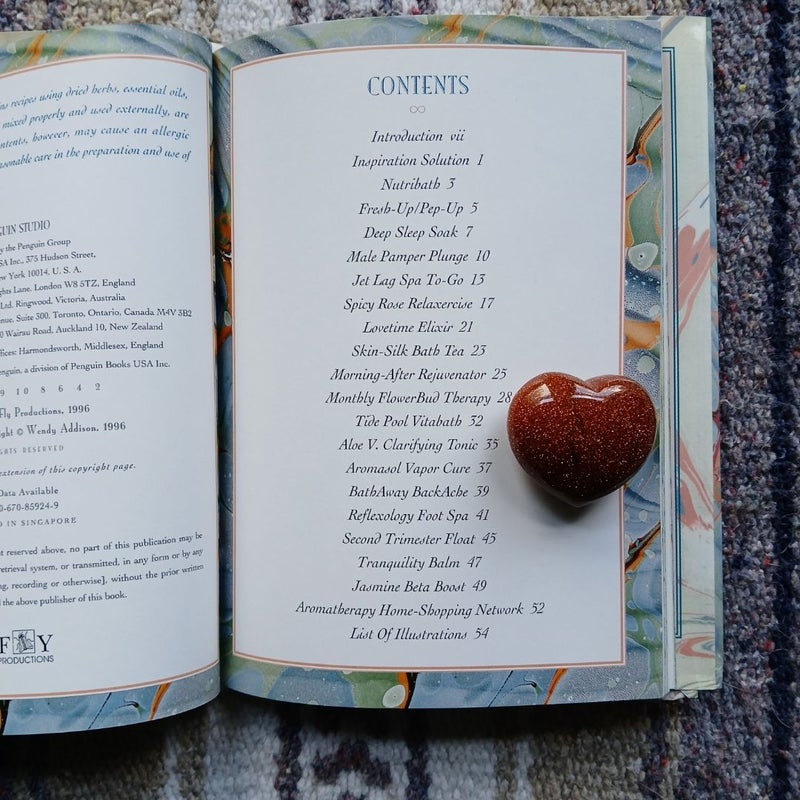 ns recipes using dried herbs, essential oils,
mixed properly and used externally, are
ntents, however, may cause an allergic
sonable care in the preparation and use of
GUIN STUDIO
y the Penguin Group
SA Inc., 375 Hudson Street,
ew York 10014, U. S. A.
ghts Lane, London W8 5TZ, England
Ltd. Ringwood, Victoria, Australia
enue, Suite 300, Toronto, Ontario, Canada M4V 3B2
0 Wairau Road, Auckland 10, New Zealand
ffices: Harmondsworth, Middlesex, England
enguin, a division of Penguin Books USA Inc.
9 10 8 6 4 2
Fly Productions, 1996
ight © Wendy Addison, 1996
GHTS RESERVED
extension of this copyright page.
Data Available
0-670-85924-9
D IN SINGAPORE
t reserved above, no part of this publication may be
retrieval system, or transmitted, in any form or by any
ng, recording or otherwise], without the prior written
d the above publisher of this book.
F Y
PRODUCTIONS
CONTENTS
Introduction vii
Inspiration Solution 1
Nutribath 3
Fresh-Up/Pep-Up 5
Deep Sleep Soak 7
Male Pamper Plunge 10
Jet Lag Spa To-Go 13
Spicy Rose Relaxercise 17
Lovetime Elixir 21
Skin-Silk Bath Tea 23
Morning-After Rejuvenator 25
Monthly FlowerBud Therapy 28
Tide Pool Vitabath 32
Aloe V. Clarifying Tonic 35
Aromasol Vapor Cure 37
BathAway BackAche 39
Reflexology Foot Spa 41
Second Trimester Float 45
Tranquility Balm 47
Jasmine Beta Boost 49
Aromatherapy Home-Shopping Network 52
List Of Illustrations 54